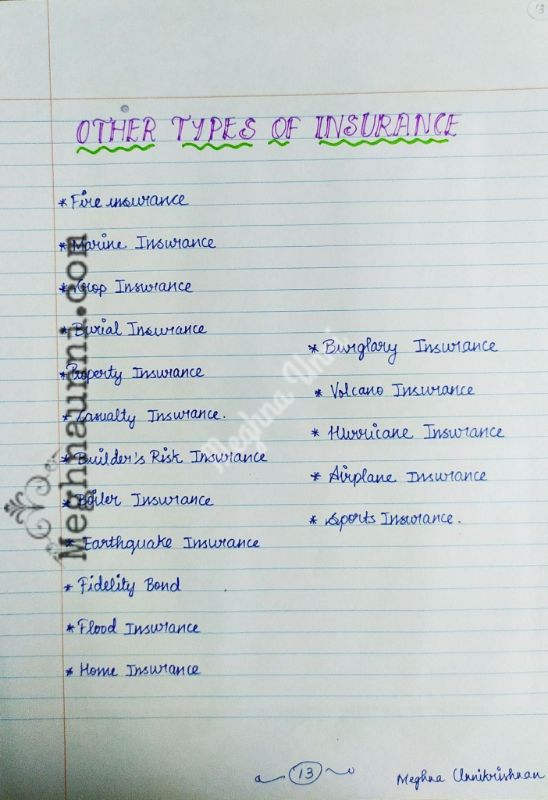 13
OTHER TYPES OF INSURANCE
* Fire insurance
* Marine Insurance
* Crop Insurance
* Burial Insurance
* Property Insurance
* Casualty Insurance.
* Builder's Risk Insurance
* Boiler Insurance
* Earthquake Insurance
* Fidelity Bond
* Flood Insurance
* Home Insurance
* Burglary Insurance
* Volcano Insurance
* Hurricane Insurance
* Airplane Insurance
* Sports Insurance.
13
Meghna Unnikrishnan
Meghnaunni.com
Meghna Unni